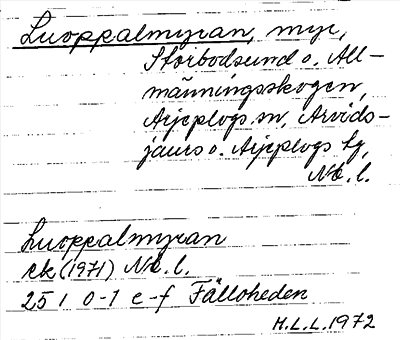 Luoppalmyran, myr,
Storbodsund o. All-
männingsskogen,
Arjeplogs sn, Arvids-
jaurs o. Arjeplogs tg,
Nb. l.
Luoppalmyran
ek (1971) Nb. l.
25 I 0-1 e-f Fälloheden
H.L.L. 1972